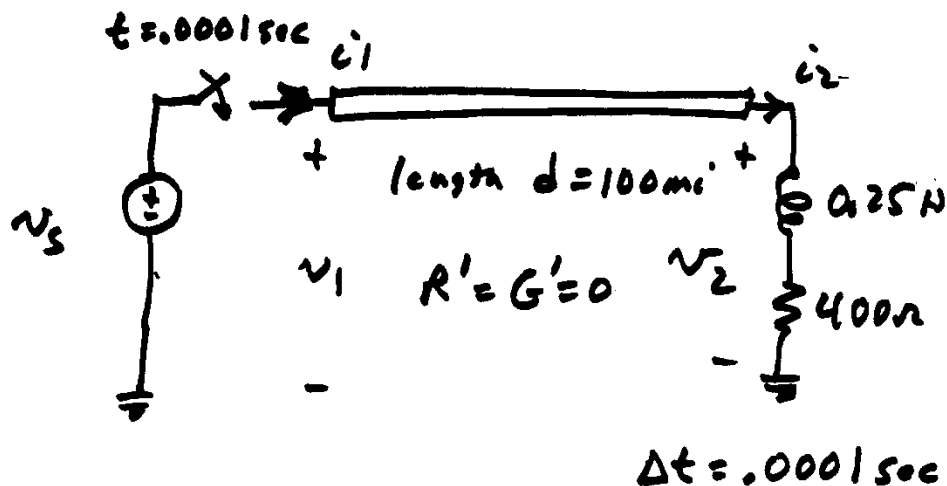 t=.0001sec
i1
i2
+
length d=100mi
+
0.25H
vs
+
-
v1
R'=G'=0
v2
400Ω
-
-
Δt=.0001sec